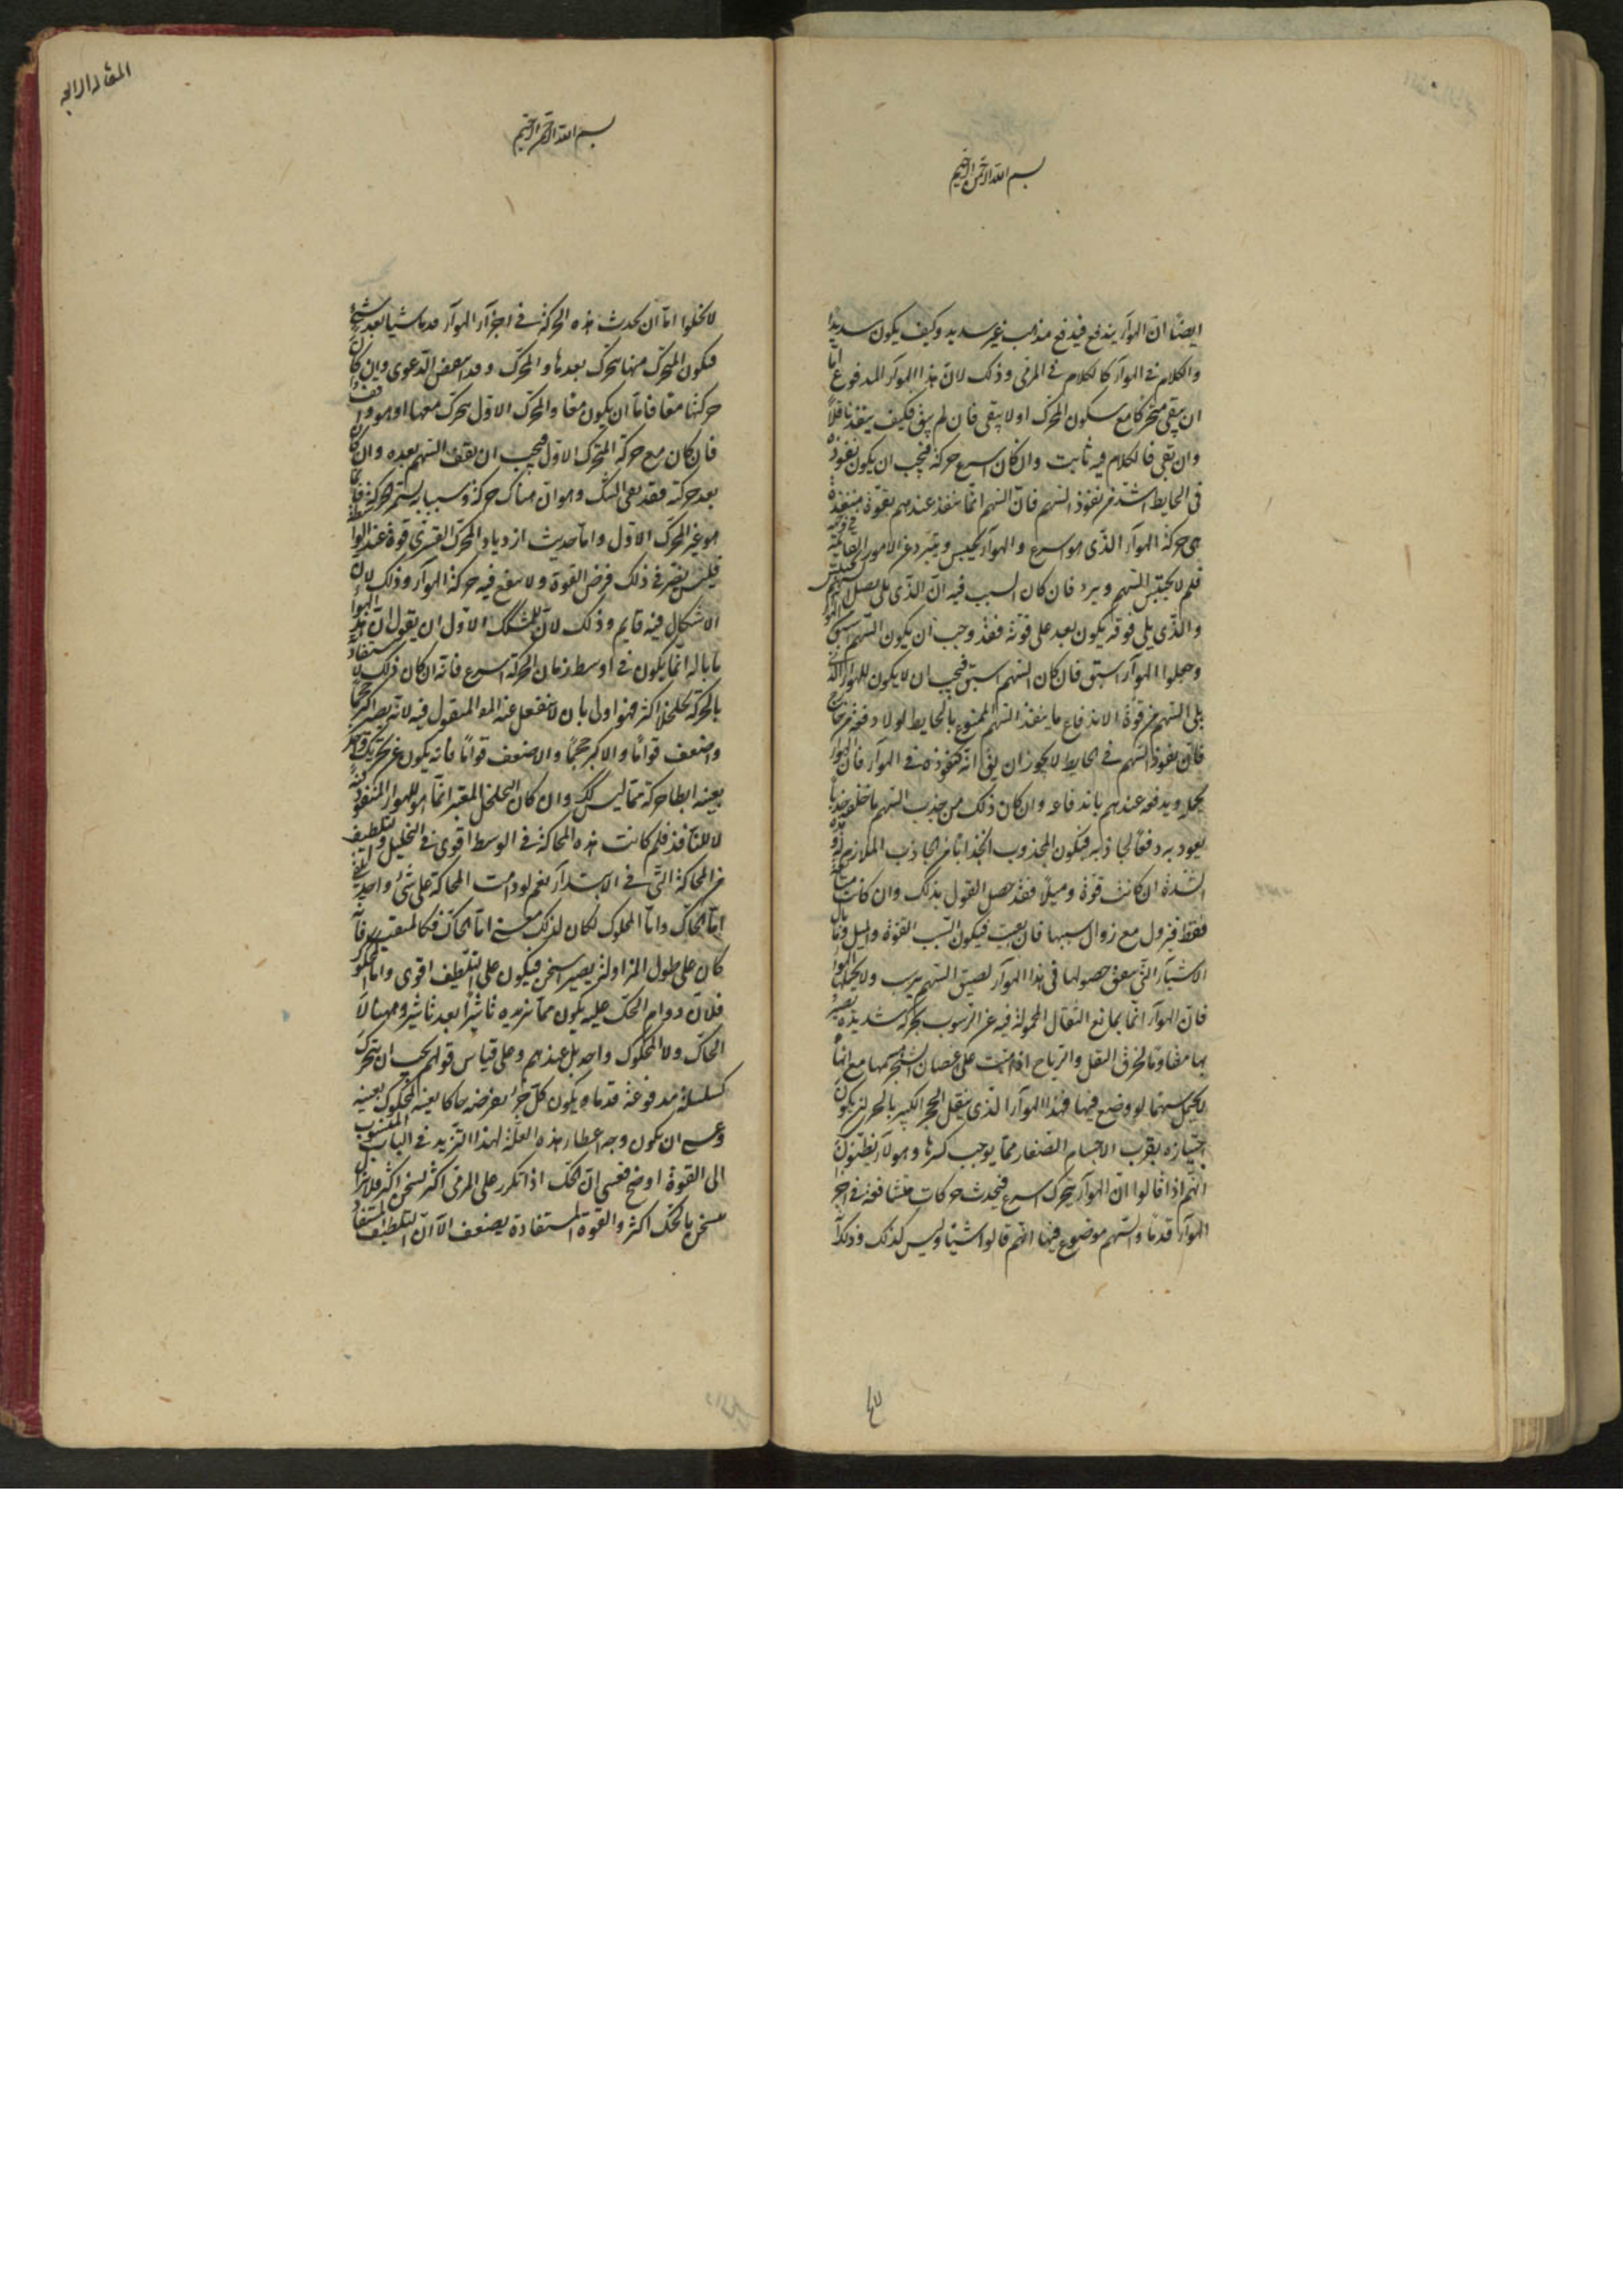 بسم الله الرحمن الرحيم
ايضًا انّ الهوآء يندفع فيدفع مذهب غير سديد وكيف يكون سديدا
والكلام فى الهوآء كالكلام فى المرمى وذلك لانّ هذا الهوآء المدفوع امّا
ان يبقى متحركا مع سكون المحرّك اولا يبقى فان لم يبق فكيف ينفذ ناقلًا
وان بقى فالكلام فيه ثابت وان كان اسرع حركة فيجب ان يكون نفوذه
فى الحايط اشدّ من نفوذ السّهم فانّ السّهم انّما ينفذ عندهم بقوّة منفذه
هى حركة الهوآء الذّى هو اسرع والهوآء يحبس ويردّ عن الامور القايمة فى وجهه
فلم لا يحتبس السّهم ويرد فان كان السبب فيه انّ الذّى يلى نصل السّهم يحتبس
والذّى يلى فوقه يكون بعد على قوّته فقد وجب ان يكون السّهم اسبق من الهوآ
وجعلوا الهوآء اسبق فان كان السّهم اسبق فيجب ان لا يكون للهوآء الذّى
يلى السّهم من قوّة الاندفاع ما ينفذ السّهم الممنوع بالحايط لولا دفعه من خارج
فانّ نفوذ السّهم فى الحايط لا يجوز ان يق انّه كنفوذه فى الهوآء فانّ الهوآ
يحمله ويدفعه عندهم باندفاعه وان كان ذلك من جذب السّهم ما خلفه جذبًا
يعود به دفعًا لجاذبه فيكون المجذوب اشدّ انجذابًا من الجاذب الملازم له وهذه
الشّدة ان كانت قوّة وميلًا فقد حصل القول بذلك وان كانت متابعة
فقط فيزول مع زوال سببها فان بقيت فيكون السّبب القوّة والميل وما بال
الاشيآء التّى يتفق حصولها فى هذا الهوآء لصيق السّهم يرسب ولا يحملها الهوآ
فانّ الهوآء انّما يمانع الثّقال المحمولة فيه عن الرّسوب بحركة شديدة يصير
بها مقاومًا لخرق الثقل والرّياح اذا هبّت على غصان الشجر هشمها مع انّها
لا يحمل سهمًا لو وضع فيها فهذا الهوآء الذى ينقل الحجر الكبير بالحرى ان يكون
اجتيازه بقرب الاجسام الصّغار ممّا يوجب كسرها وهولآء يظنّون
انّهم اذا قالوا انّ الهوآء يتحرك اسرع فيحدث حركات متشافعة فى اجزا
الهوآء قدمًا والسّهم موضوع فيها انّهم قالوا شيئًا وليس كذلك وذلك انّه
المقاله الرابعه
بسم الله الرحمن الرحيم
لا يخلوا امّا ان يحدث هذه الحركة فى اجزآء الهوآء قدما شيئا بعد شئ
فيكون المتحرّك منها يتحرّك بعد هاوالمحرّك وقد انتقض الدّعوى وان كان
حركتها معًا فامّا ان يكون معًا والمحرّك الاوّل يتحرّك معها او هو واقف
فان كان مع حركة المتحرّك الاوّل فيجب ان يقف السّهم بعده وان كان
بعد حركته فقد بقى الشّك وهو انّ هناك حركة وسببا يستمرّ الحركة فا
هو غير المحرّك الاوّل وامّا حديث ازدياد المحرّك القسرى قوة عند الواسطة
فليس يضرّ فى ذلك فرض القوة ولا ينفع فيه حركة الهوآء وذلك لانّ
الاشكال فيه قايم وذلك لانّ للمشكك الاوّل ان يقول انّ هذا الهوآ
ما باله انّما يكون فى اوسط زمان الحركة اسرع فانّه ان كان ذلك لاستفادة
بالحركة تخلخلًا اكثر فهو اولى بان لا ينفعل عنه الهوا المنقول فيه لانّه يصير اكبر حجمًا
واضعف قوامًا والاكبر حجمًا والاضعف قوامًا فانّه يكون عن تحريك
بعينه ابطا حركة ممّا ليس كك وان كان التّخلخل المعتبر انّما هو للهوآء المنفوذ فيه
لا للنّافذ فلم كانت هذه المحاكة فى الوسط اقوى فى التخليل والتّلطيف
من المحاكّة التّى فى الابتدآء نعم لو دامت المحاكّة على شئ واحد
امّا الحاكّ وامّا المحكوك لكان لذلك معنى امّا الحاكّ فكالمثقب فانّه
كان على طول المزاولة يصير اسخن فيكون على التّلطيف اقوى وامّا المحكوك
فلانّ دوام الحكّ عليه يكون ممّا يزيده تاثيرًا بعد تاثير وههنا لا
الحاكّ ولا المحكوك واحد بل عندهم وعلى قياس قولهم يجب ان يتحرّك
كسلسلة مدفوعة قدما ويكون كلّ جزء يعرضه حاكا بعينه المحكوك بعينه
وعسى ان يكون وجه اعطاء هذه العلّة لهذا التّزيد فى الباب المنسوب
الى القوّة اوضح فعسى انّ الحكّ اذا تكرر على المرمى اكثر تسخن اكثر فلا يزال
يتسخن بالحكّ اكثر والقوّة المستفادة يضعف الّا انّ التلطّف المستفاد